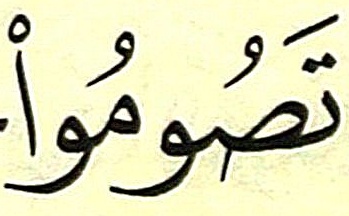 تَصُومُواْ